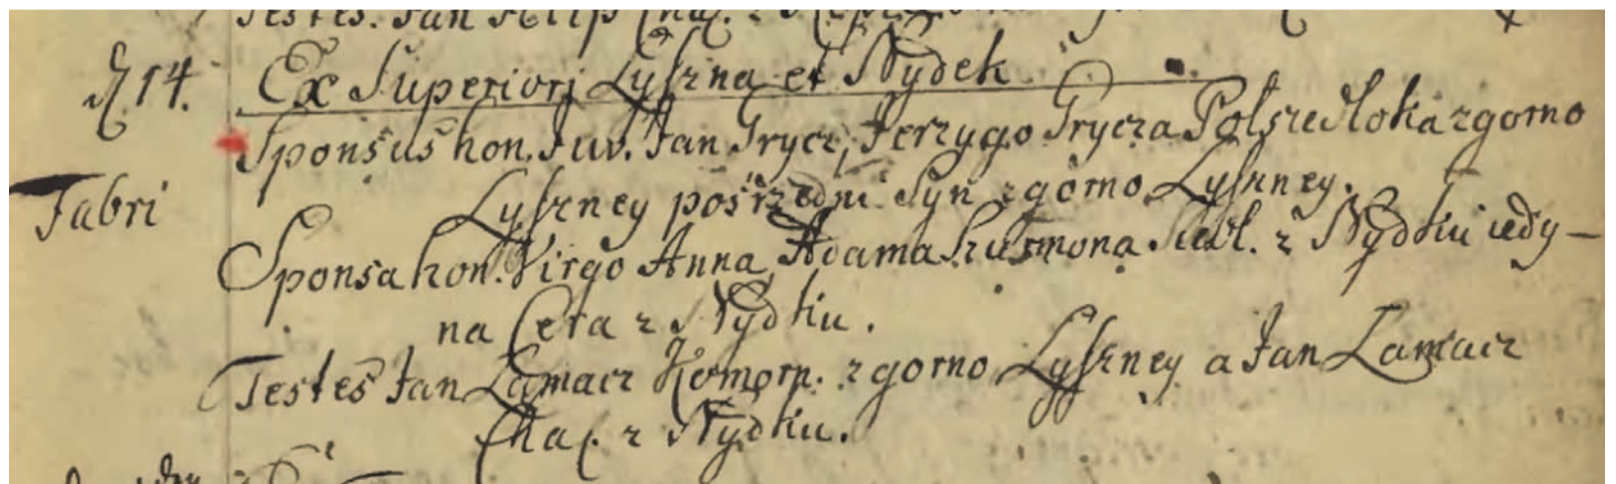 Testes. Jan Filip Chał. z
14. Ex Superiori Lyſzna et Nydek
Sponsus hon. Juv. Jan Grycz, Jerzygo Grycza Polsiedloka z gorno
Fabri
Lyſzney pośrzedni Syn z gorno Lyſzney.
Sponsa hon. Virgo Anna, Adama Szuſmona Siedl. z Nydku iedy-
na Cera z Nydku.
Testes Jan Łamacz Komorn. z gorno Lyſzney a Jan Łamacz
Chał. z Nydku.